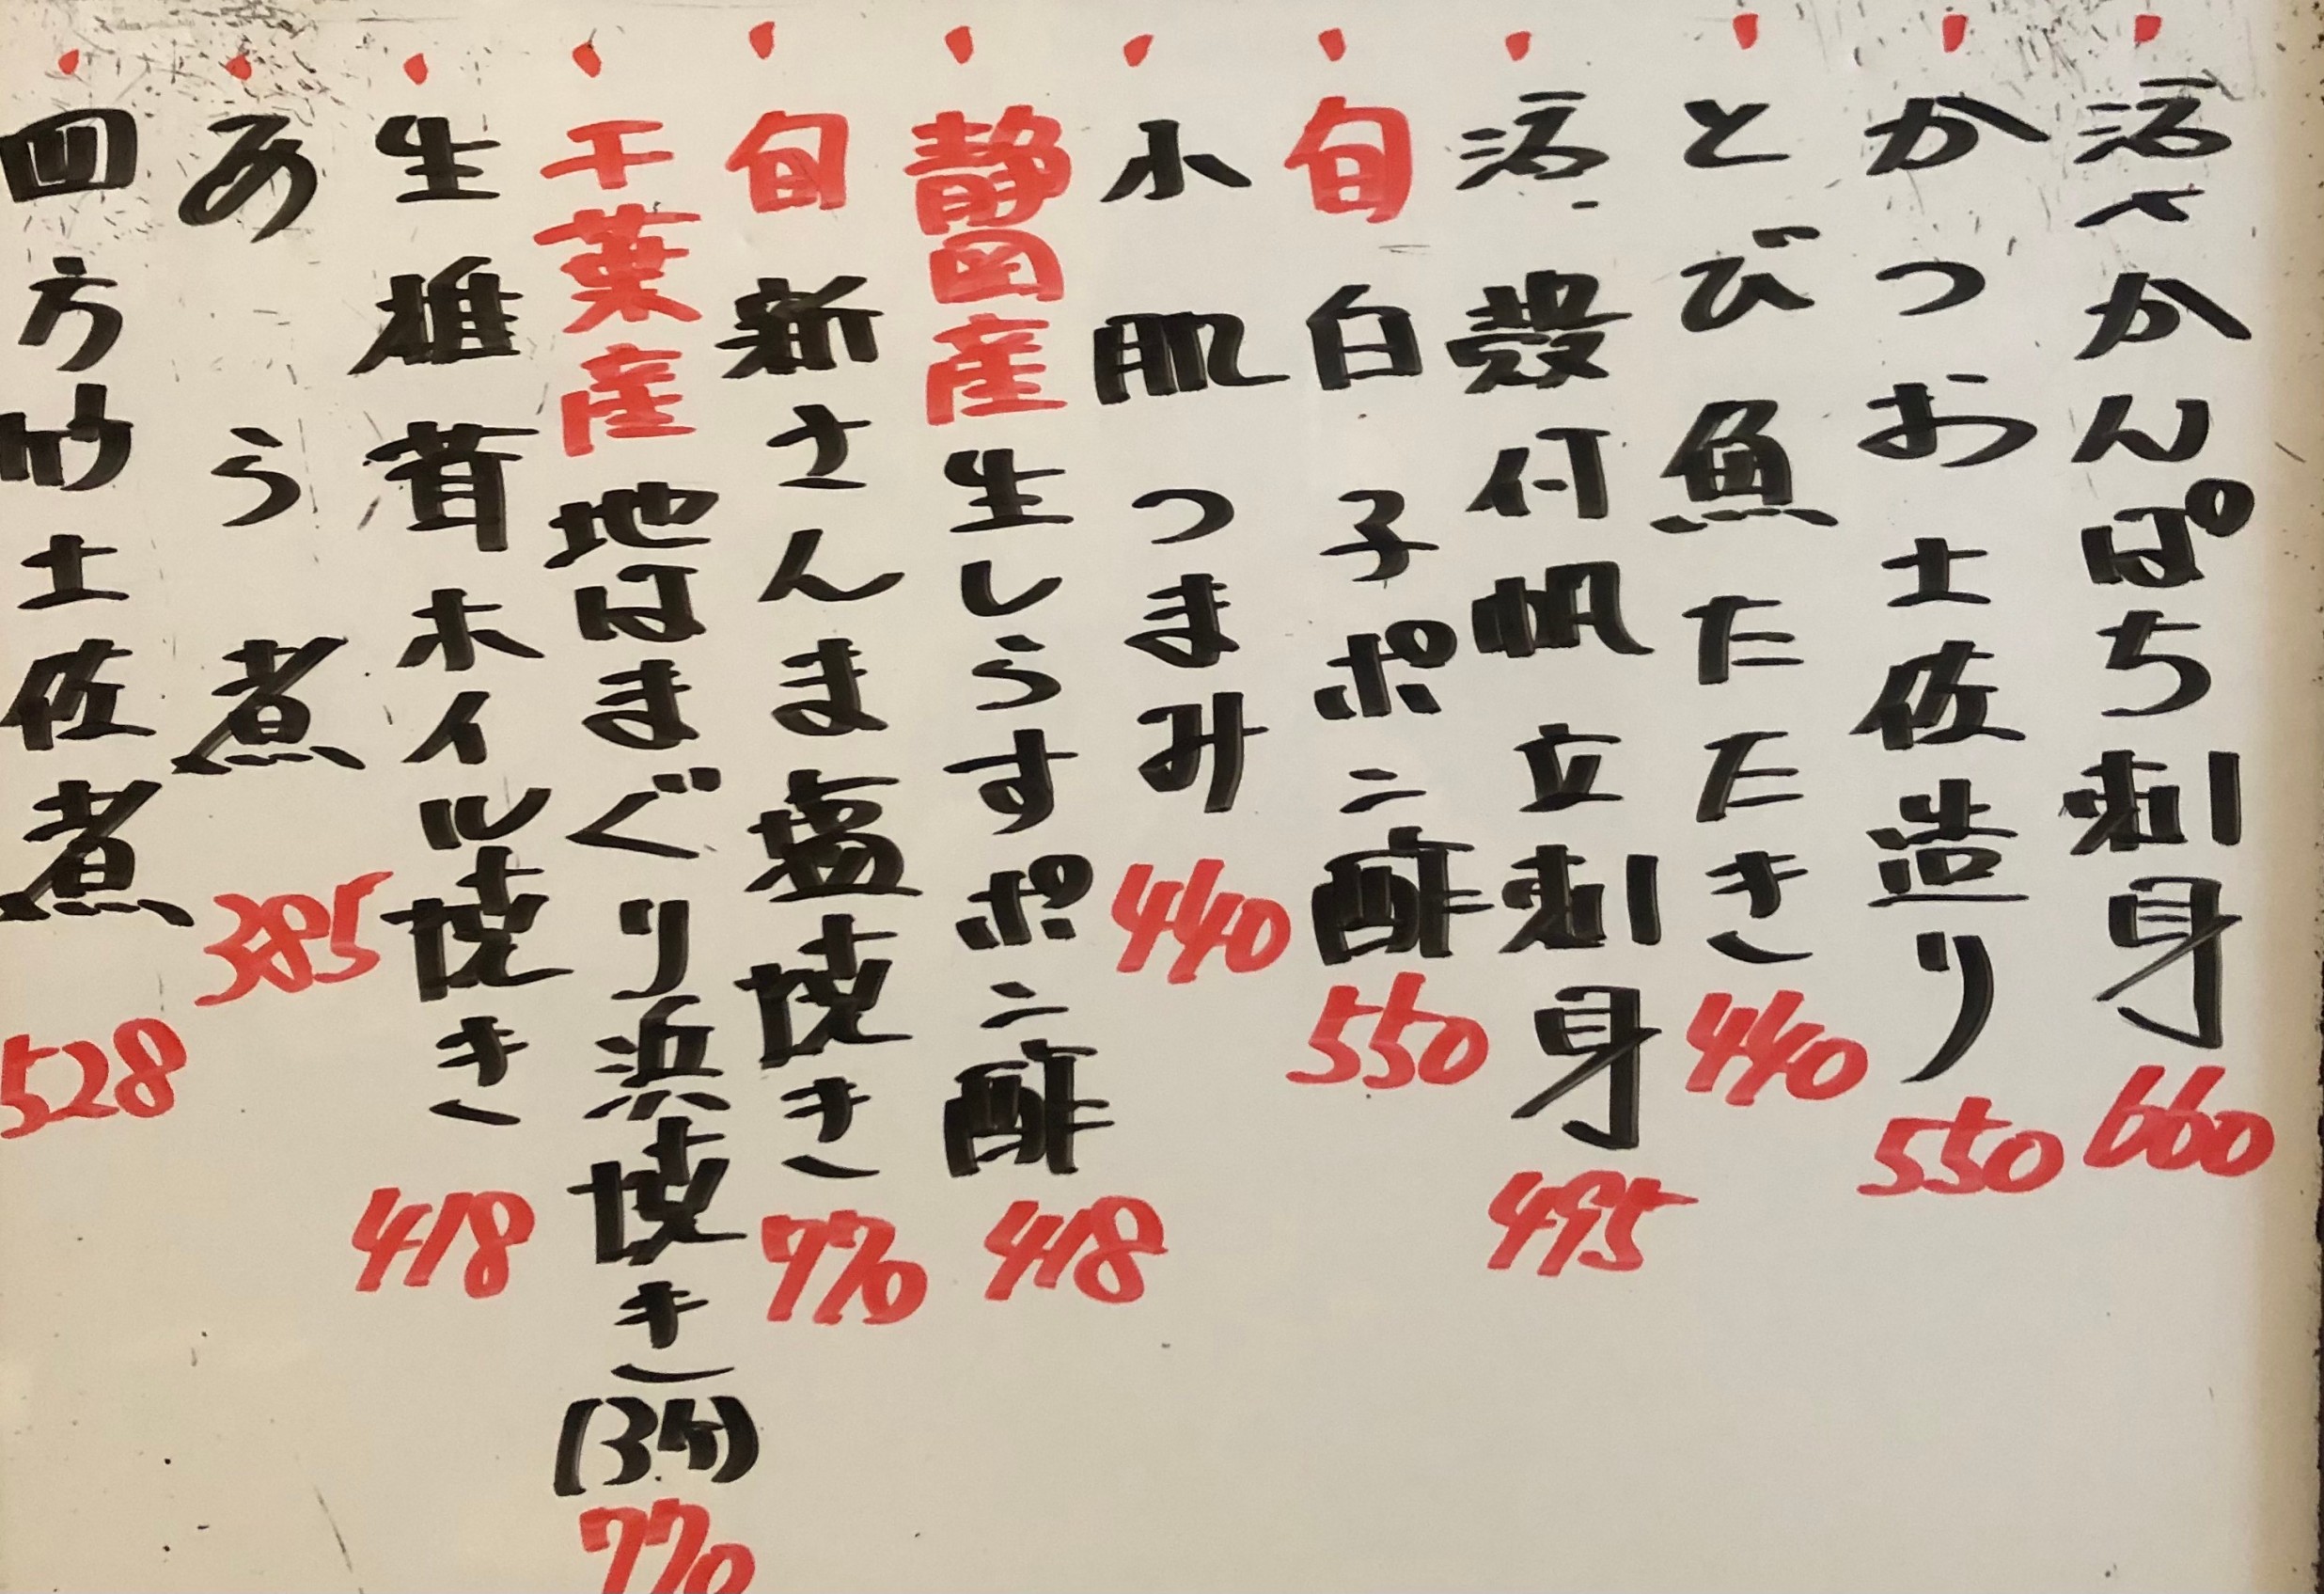 活〆かんぱち刺身 660
かつお土佐造り 550
とび魚たたき 440
活 殻付帆立刺身 495
旬 白子ポン酢 550
小肌つまみ 440
静岡産 生しらすポン酢 418
旬 新さんま塩焼き 770
千葉産 地はまぐり浜焼き(3ケ) 770
生椎茸ホイル焼き 418
あら煮 385
四方竹土佐煮 528